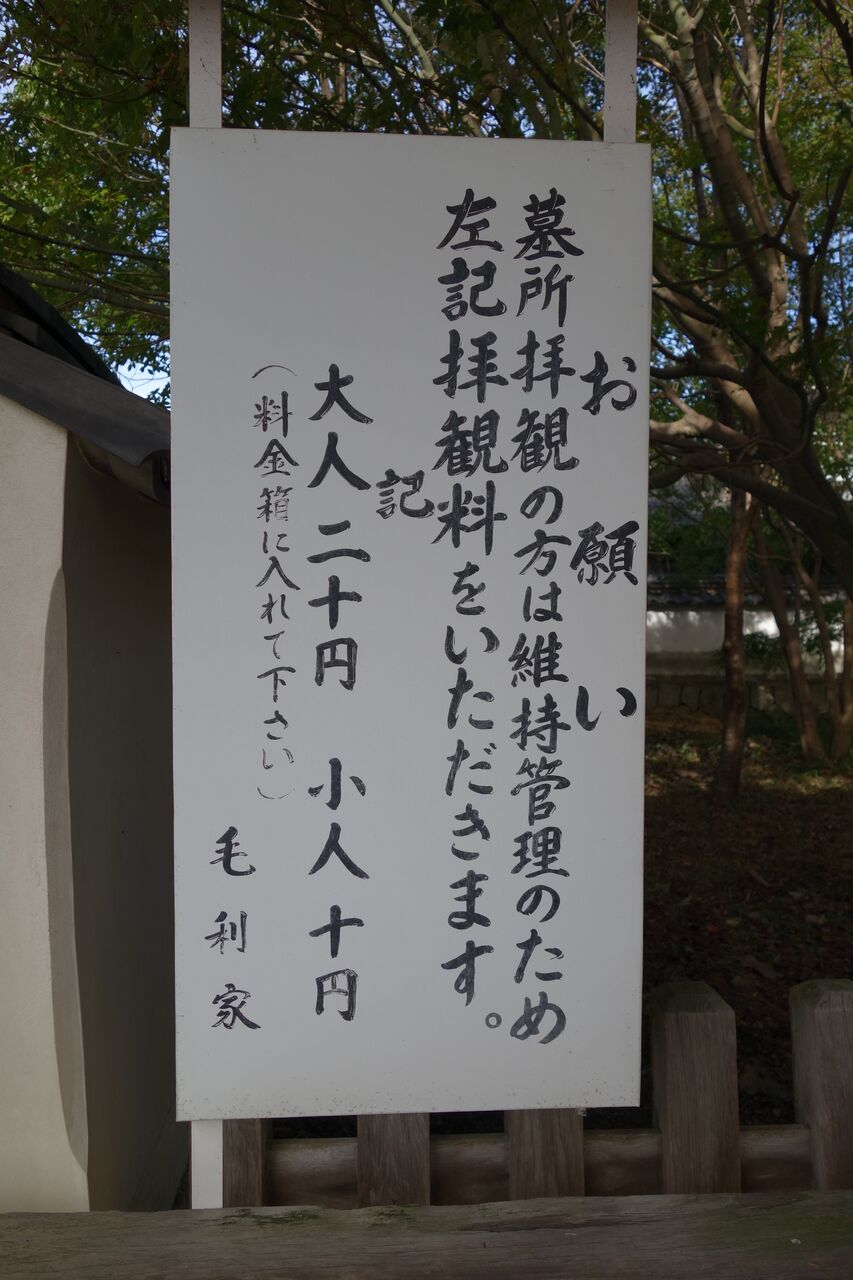 お願い
墓所拝観の方は維持管理のため
左記拝観料をいただきます。
記
大人二十円 小人十円
（料金箱に入れて下さい）
毛利家